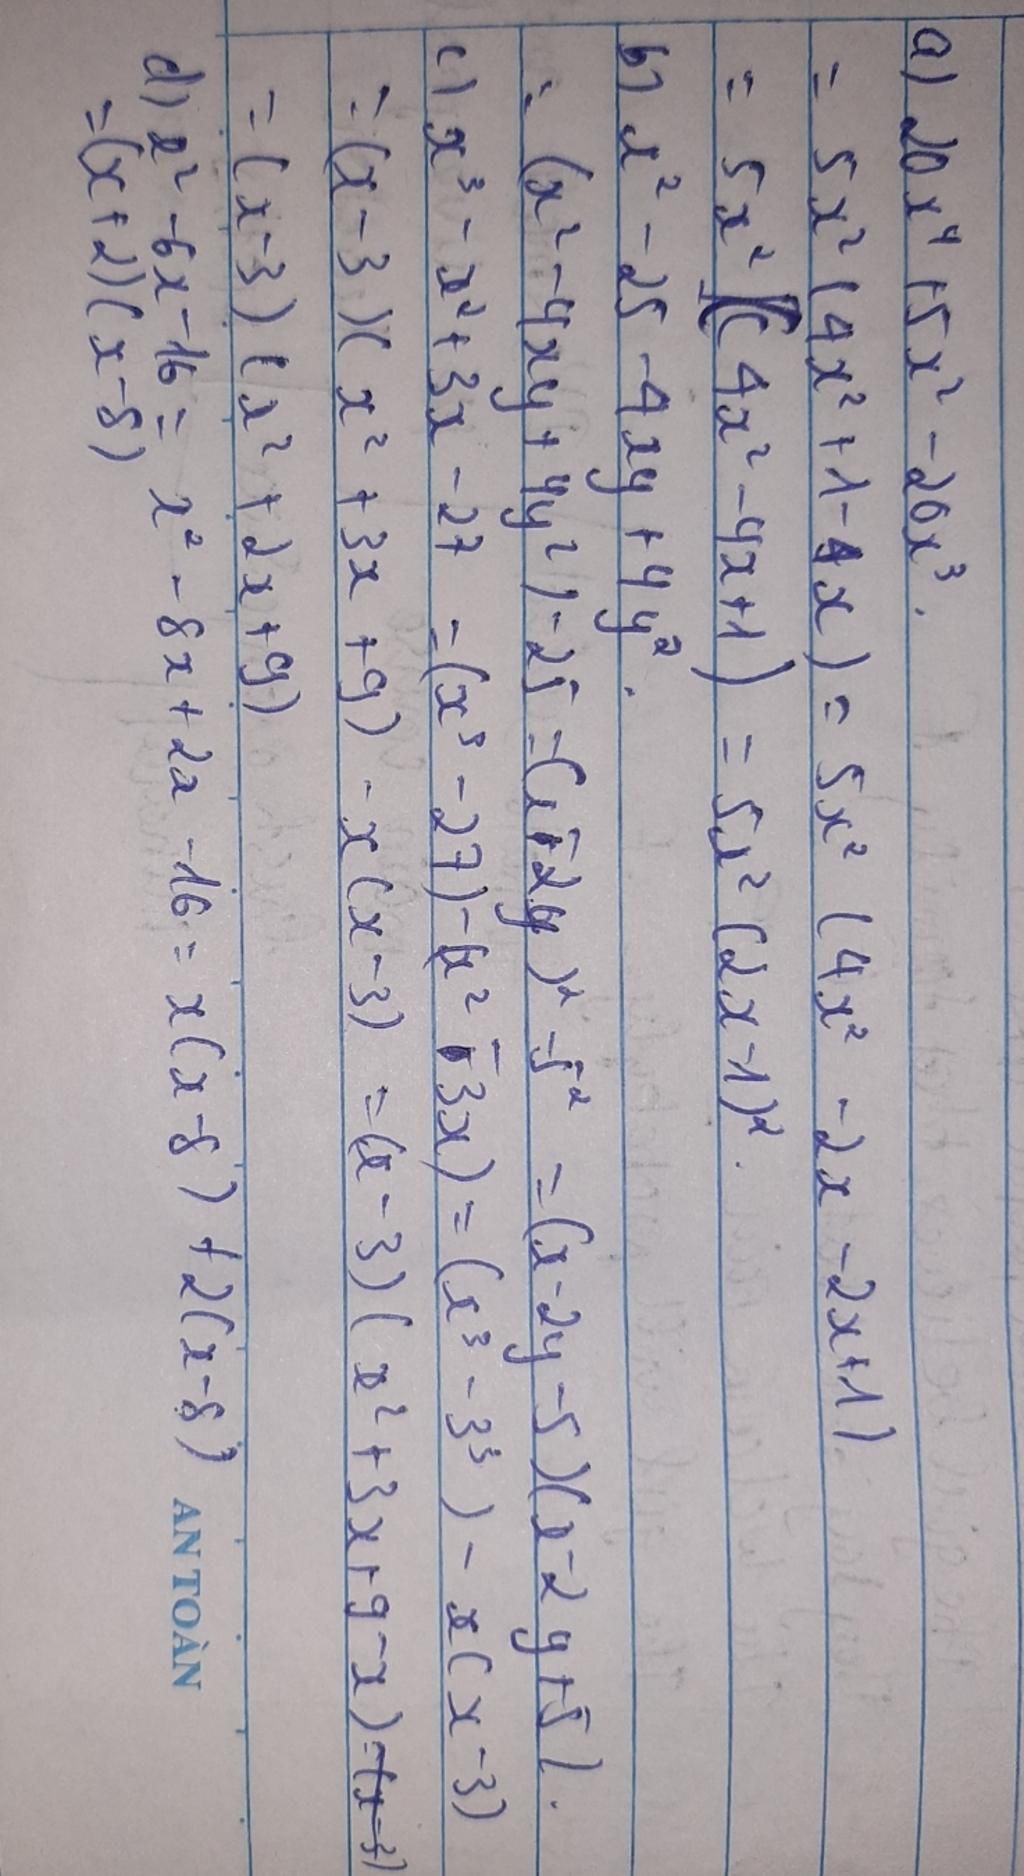 a) 20x⁴ + 5x² - 20x³.
= 5x² (4x² + 1 - 4x) = 5x² (4x² - 2x - 2x + 1)
= 5x² (4x² - 4x + 1) = 5x² (2x - 1)².
b) x² - 25 - 4xy + 4y².
= (x² - 4xy + 4y²) - 25 = (x - 2y)² - 5² = (x - 2y - 5)(x - 2y + 5).
c) x³ - x² + 3x - 27 = (x³ - 27) - (x² - 3x) = (x³ - 3³) - x(x - 3)
= (x - 3)(x² + 3x + 9) - x(x - 3) = (x - 3)(x² + 3x + 9 - x) = (x - 3)
= (x - 3)(x² + 2x + 9)
d) x² - 6x - 16 = x² - 8x + 2x - 16 = x(x - 8) + 2(x - 8)
= (x + 2)(x - 8)
AN TOÀN